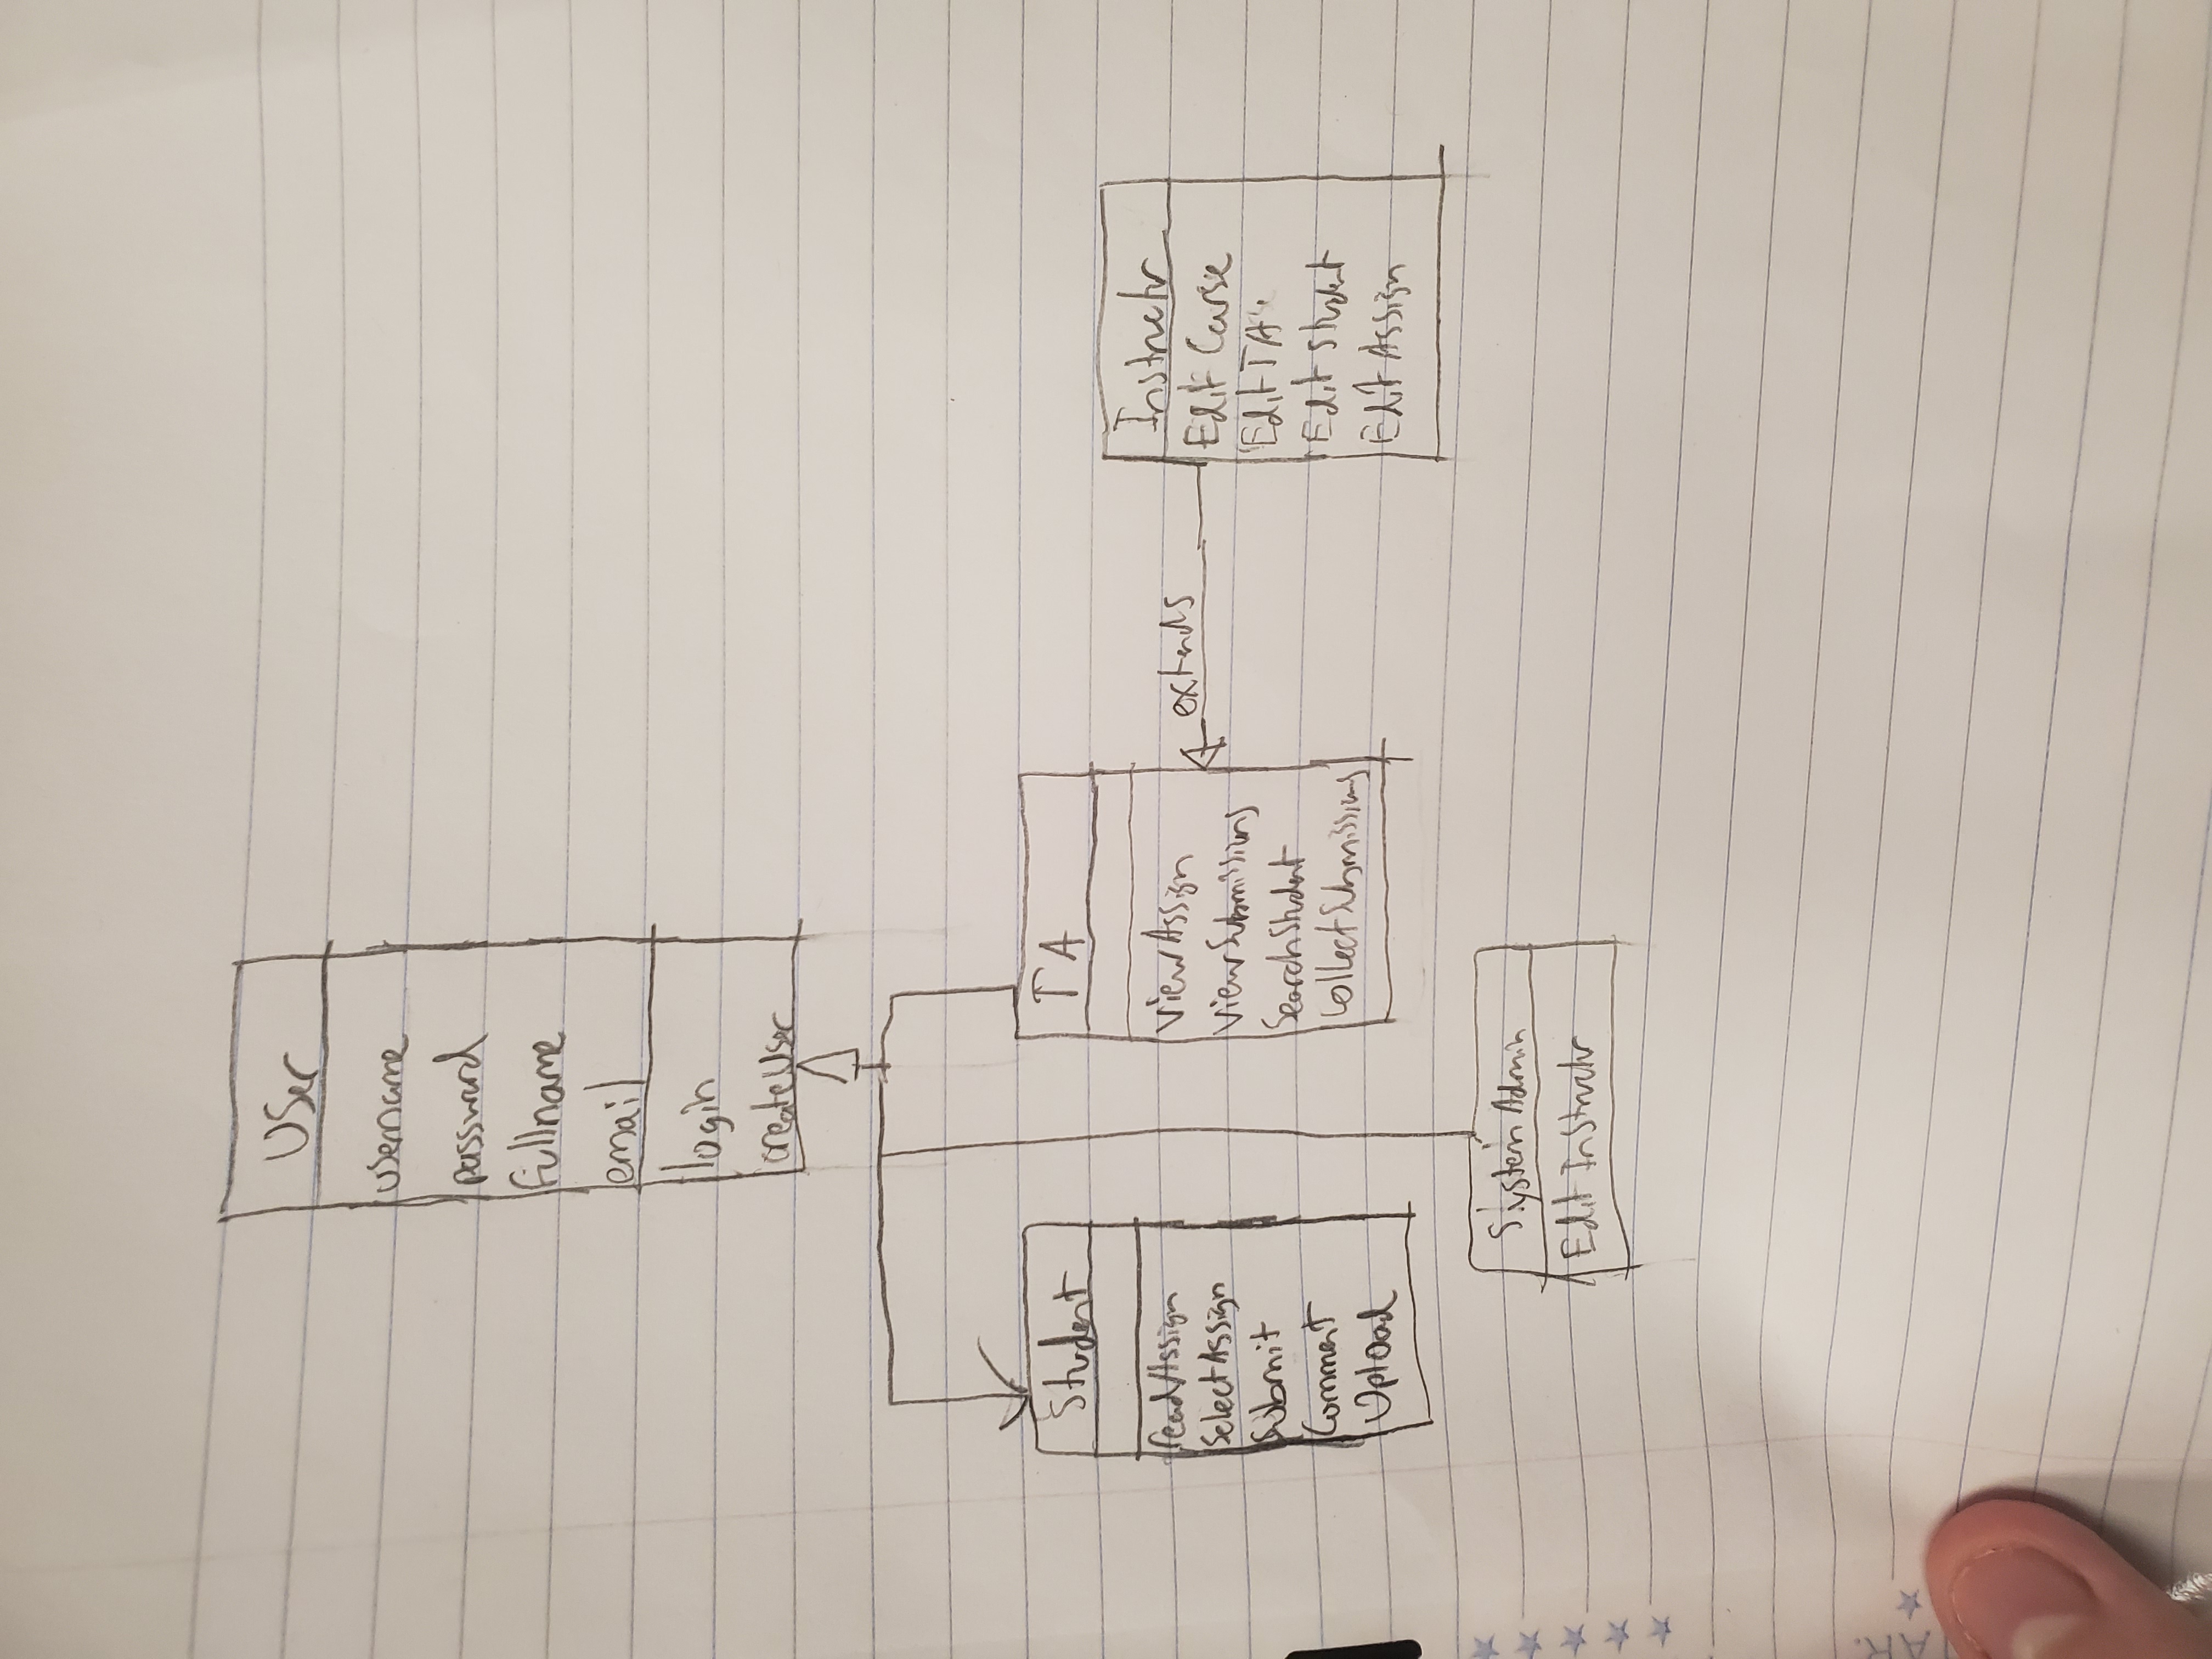 User
username
password
fullname
email
login
createUser
Student
readAssign
SelectAssign
Submit
Comment
Upload
TA
ViewAssign
ViewSubmissions
SearchStudent
CollectSubmissions
extends
Instructr
Edit Course
Edit TA
Edit Student
Edit Assign
System Admin
Edit Instructr
AR.